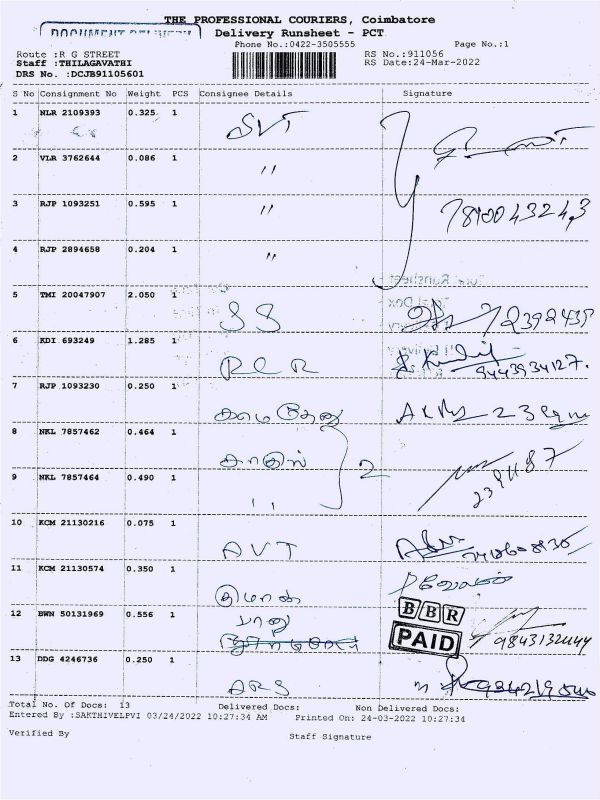 THE PROFESSIONAL COURIERS, Coimbatore
Delivery Runsheet - PCT
Phone No.:0422-3505555
Page No.:1
Route :R G STREET
RS No.:911056
Staff :THILAGAVATHI
RS Date:24-Mar-2022
DRS No. :DCJB91105601
S No Consignment No Weight PCS Consignee Details Signature
1 NLR 2109393 0.325 1 SVT
2 VLR 3762644 0.086 1 "
3 RJP 1093251 0.595 1 "
4 RJP 2894658 0.204 1 "
5 TMI 20047907 2.050 1 SS
6 KDI 693249 1.285 1 RCR 9443934127.
7 RJP 1093230 0.250 1
8 NKL 7857462 0.464 1 2
9 NKL 7857464 0.490 1 "
10 KCM 21130216 0.075 1 AVT
11 KCM 21130574 0.350 1
BBR
PAID
12 BWN 50131969 0.556 1 பானு
13 DDG 4246736 0.250 1 ARS
Total No. Of Docs: 13 Delivered Docs: Non Delivered Docs:
Entered By :SAKTHIVELPVI 03/24/2022 10:27:34 AM Printed On: 24-03-2022 10:27:34
Verified By
Staff Signature